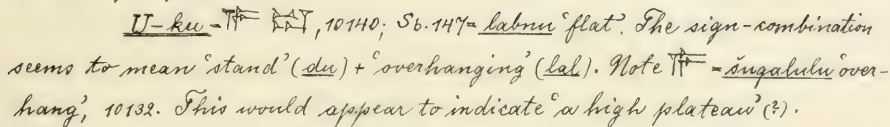 U-ku - 𒇲 𒁺, 10140; Sb. 147 = labnu 'flat'. The sign-combination
seems to mean 'stand' (du) + 'overhanging' (lal). Note 𒇲 = šugalulu 'over-
hang', 10132. This would appear to indicate 'a high plateau' (?).